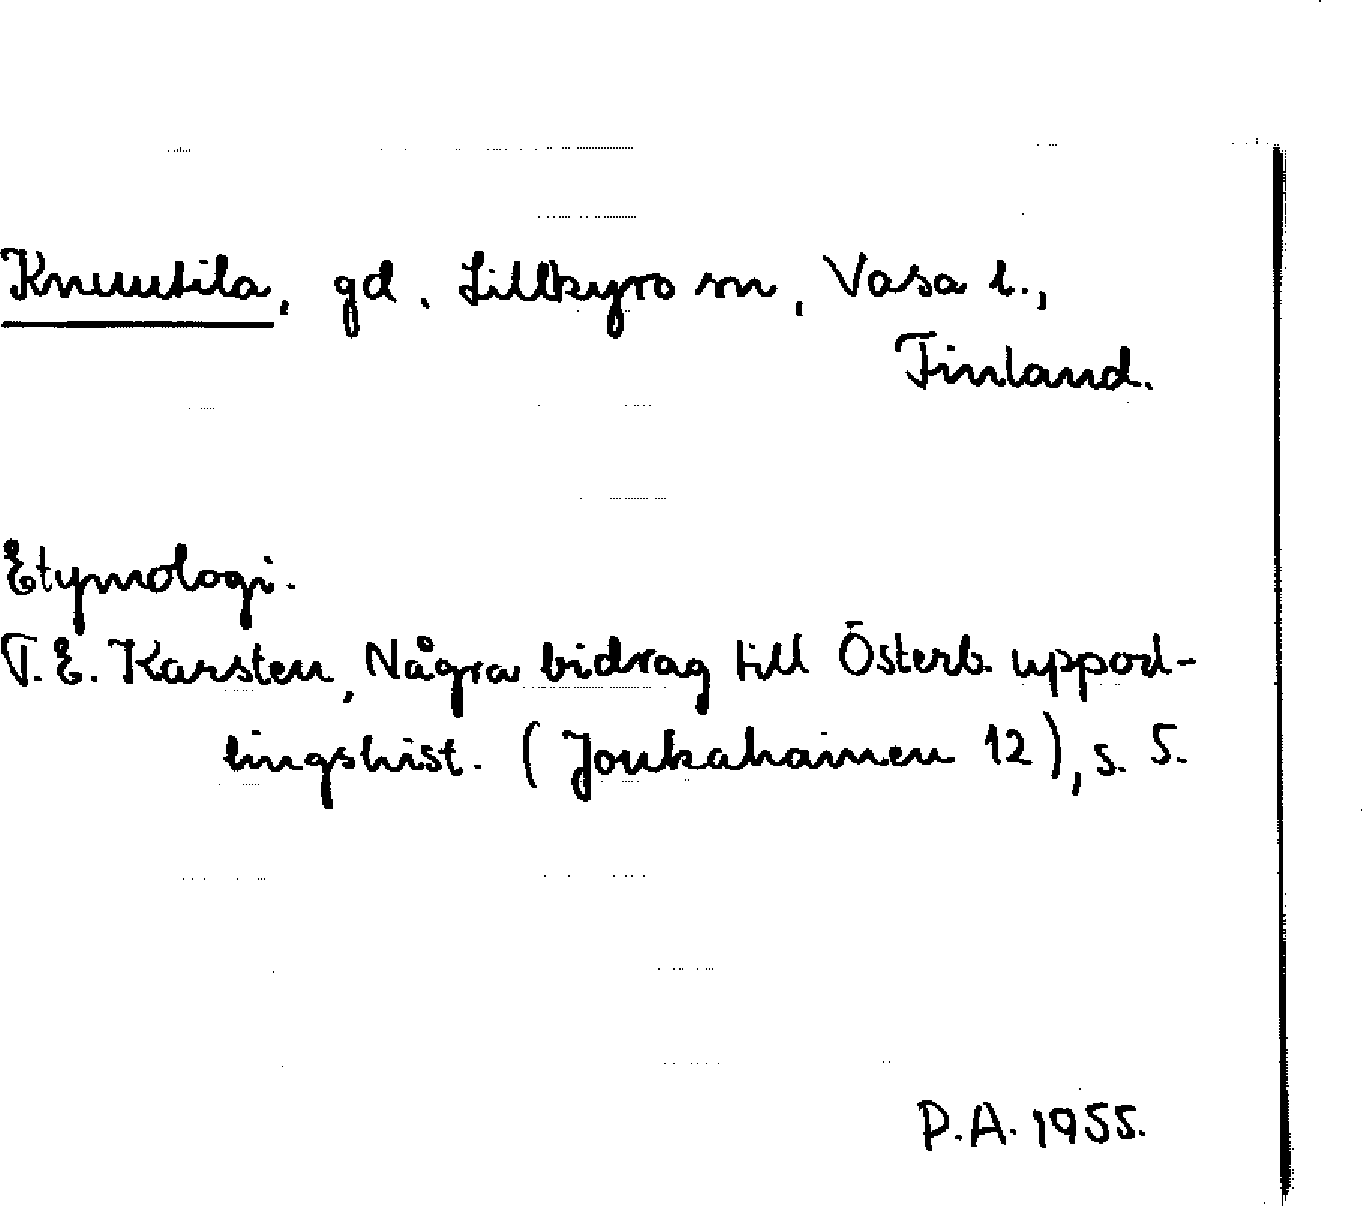 Knuutila, gd, Lillkyro sn, Vasa l.,
Finland.
Etymologi.
T. E. Karsten, Några bidrag till Österb. uppod-
lingshist. (Joukahainen 12), s. 5.
P.A. 1955.